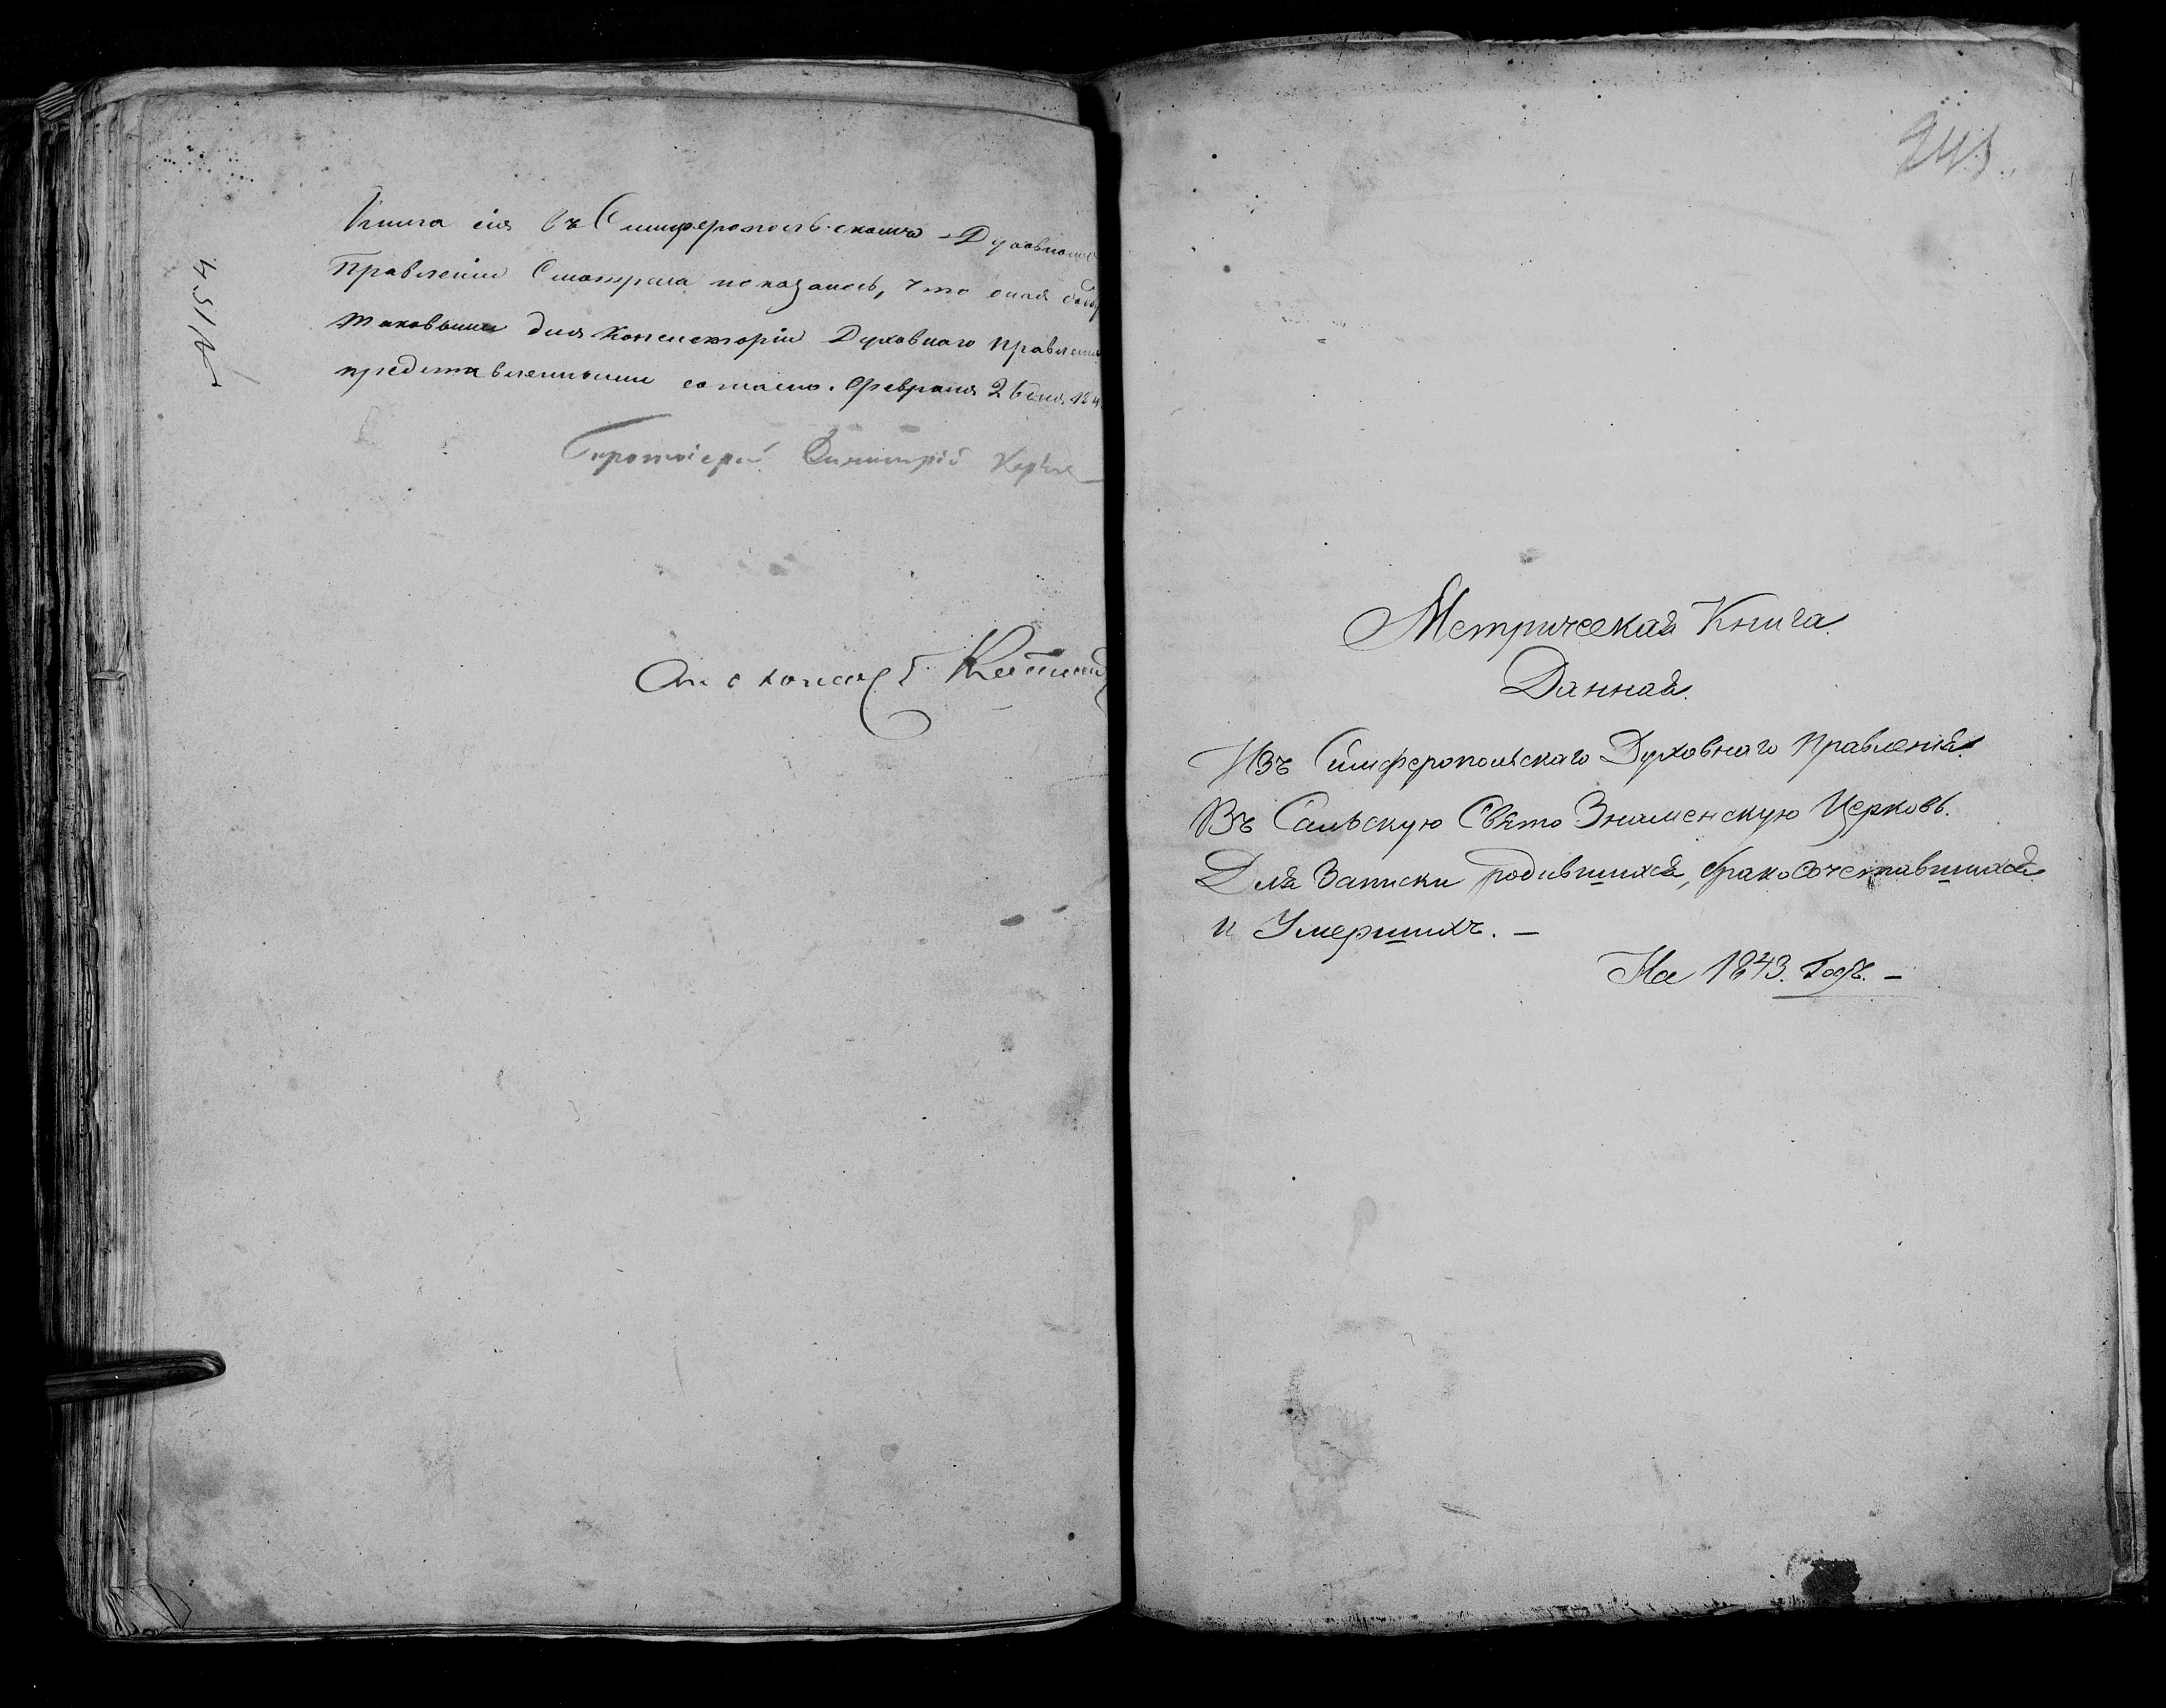 Книга сія въ Симферопольскомъ Духовном
Правленіи Смотрена и оказалось, что оная съ
таковыми для Консисторіи Духовного Правлен
представленными согласно. Февраля 26 дня 184
Протоіерей Димитрій
Метрическая Книга
Данная.
Изъ Симферопольскаго Духовнаго Правленія.
Въ Сальскую Свято Знаменскую Церковь.
Для Записки родившихся, бракосочетавшихся
и Умершихъ. —
На 1843. Годъ. —